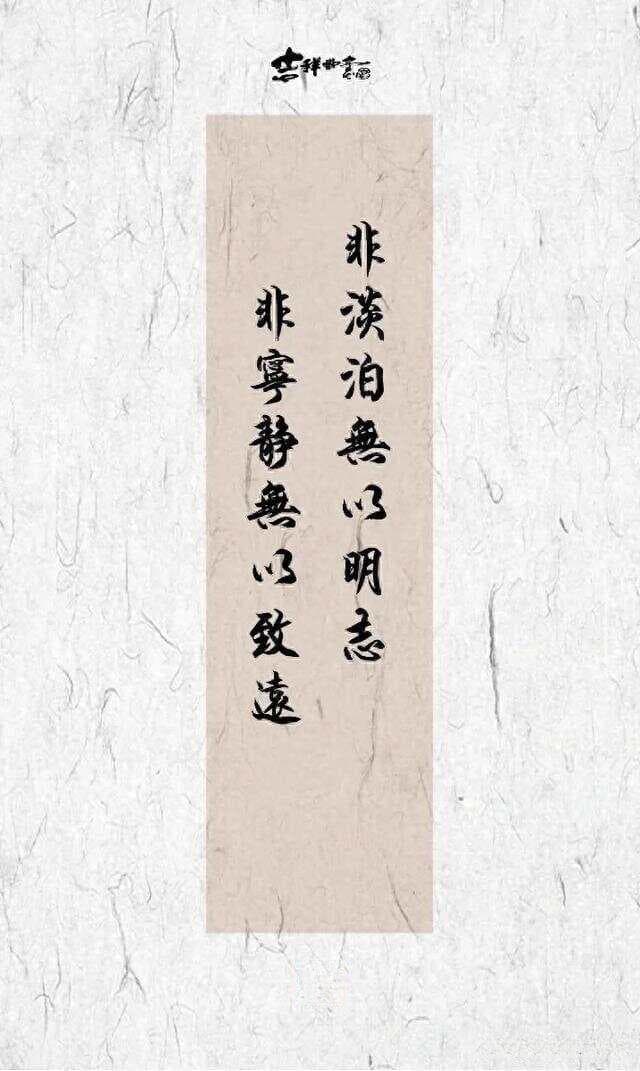 吉祥
非淡泊無以明志
非寧静無以致遠